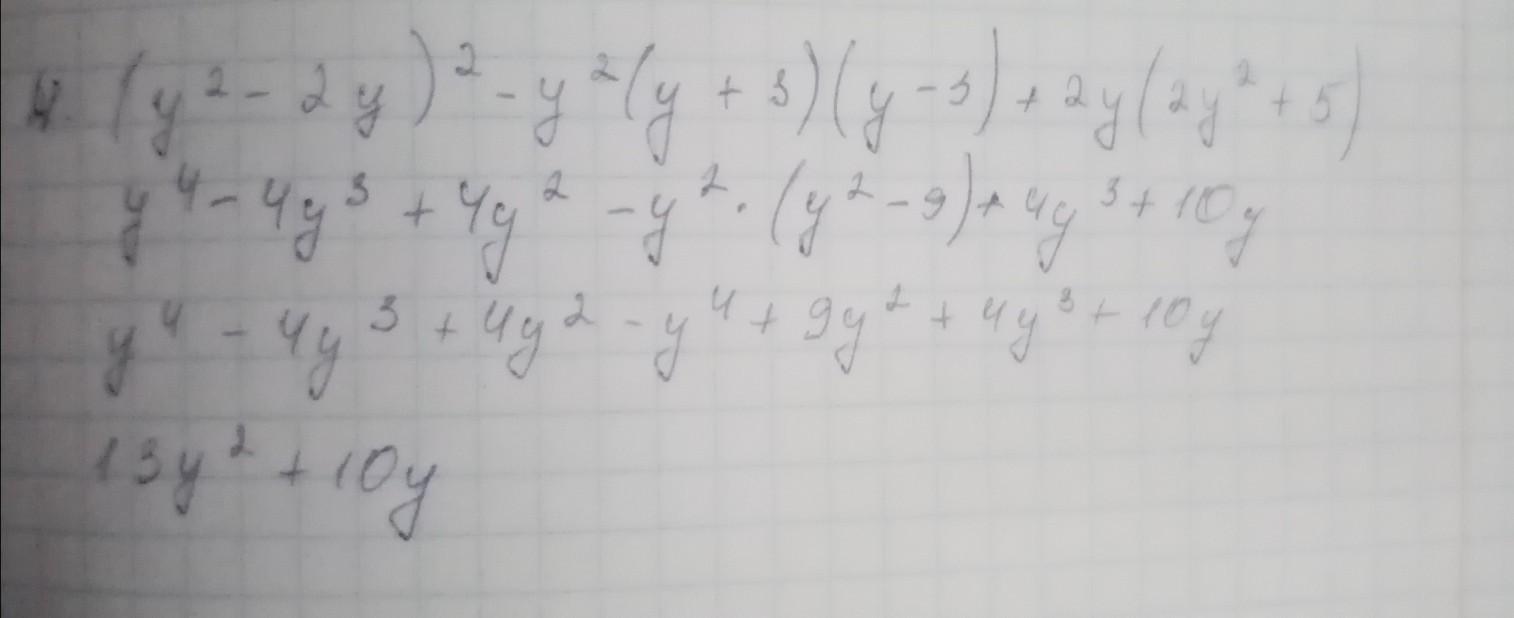 4. (y² - 2y)² - y²(y + 3)(y - 3) + 2y(2y² + 5)
y⁴ - 4y³ + 4y² - y² · (y² - 9) + 4y³ + 10y
y⁴ - 4y³ + 4y² - y⁴ + 9y² + 4y³ + 10y
13y² + 10y